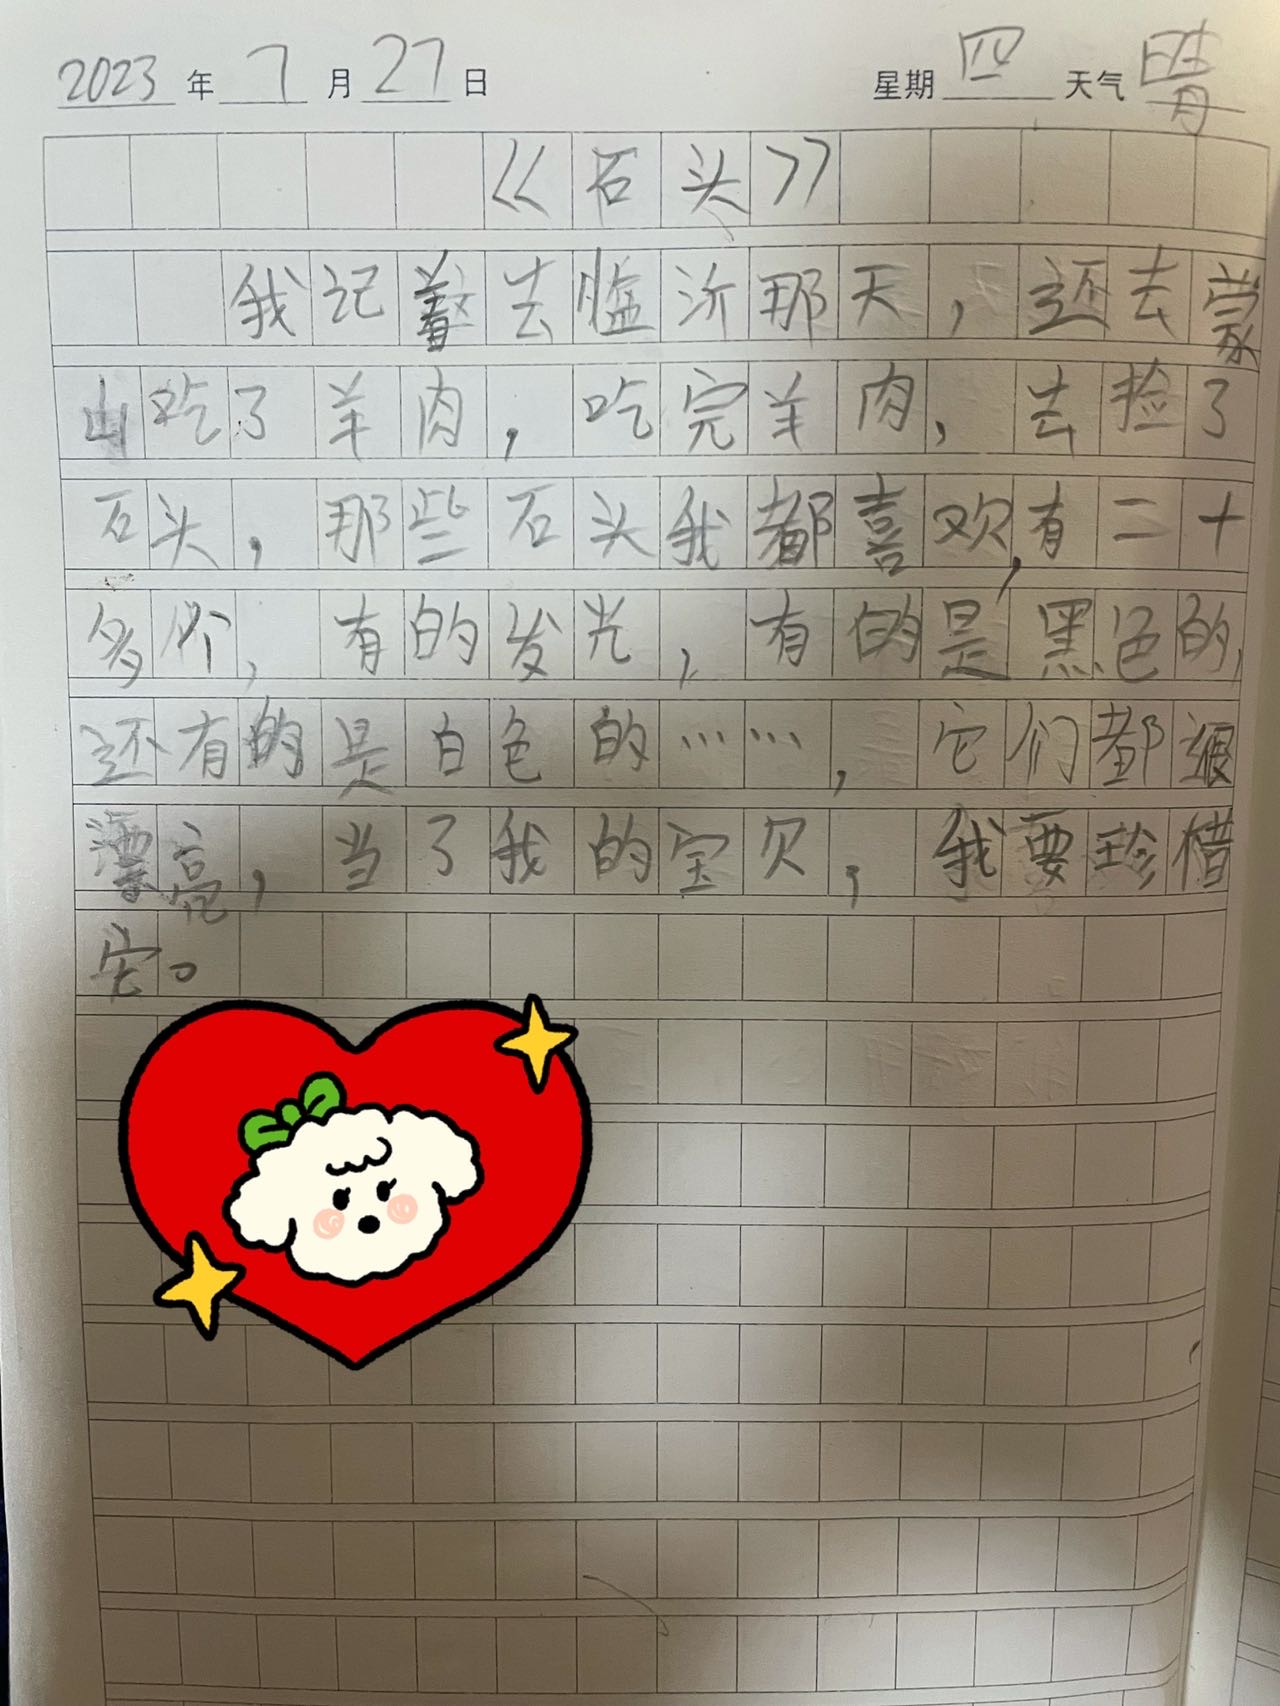 2023年7月27日 星期四 天气晴
《石头》
我记着去临沂那天，还去蒙
山吃了羊肉，吃完羊肉，去捡了
石头，那些石头我都喜欢，有二十
多个，有的发光，有的是黑色的，
还有的是白色的……，它们都很
漂亮，当了我的宝贝，我要珍惜
它。